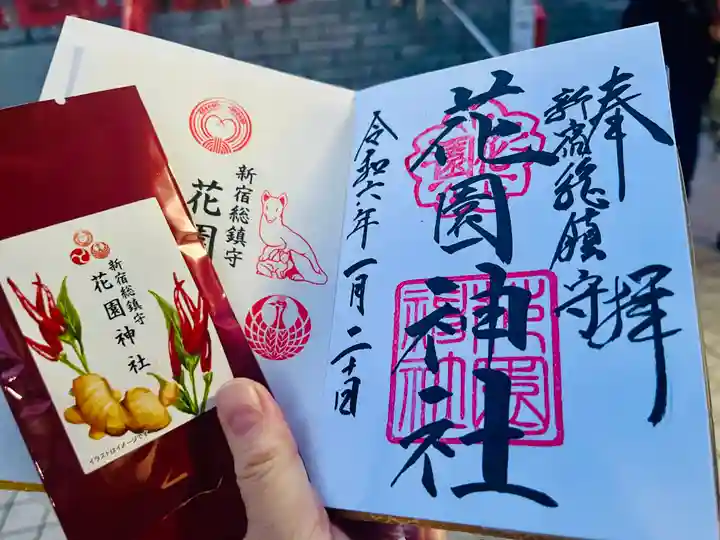 奉拝
新宿総鎮守
花園神社
令和六年一月二十日
新宿総鎮守
花園
新宿総鎮守
花園神社
イラストはイメージです